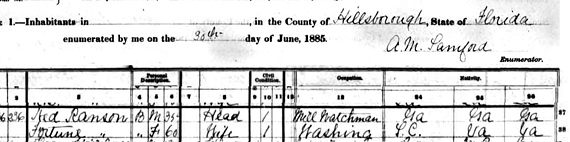 1.—Inhabitants in , in the County of Hillsborough, State of Florida
enumerated by me on the day of June, 1885.
A. M. Samford
Enumerator.
Personal Description. Civil Condition. Occupation. Nativity.
2 3 4 5 6 7 8 9 10 11 12 13 24 25 26
Ranson B M 35 Head 1 Mill Watchman Ga Ga Ga 37
Fortune " " F 60 Wife 1 Washing S.C. Ga Ga 38